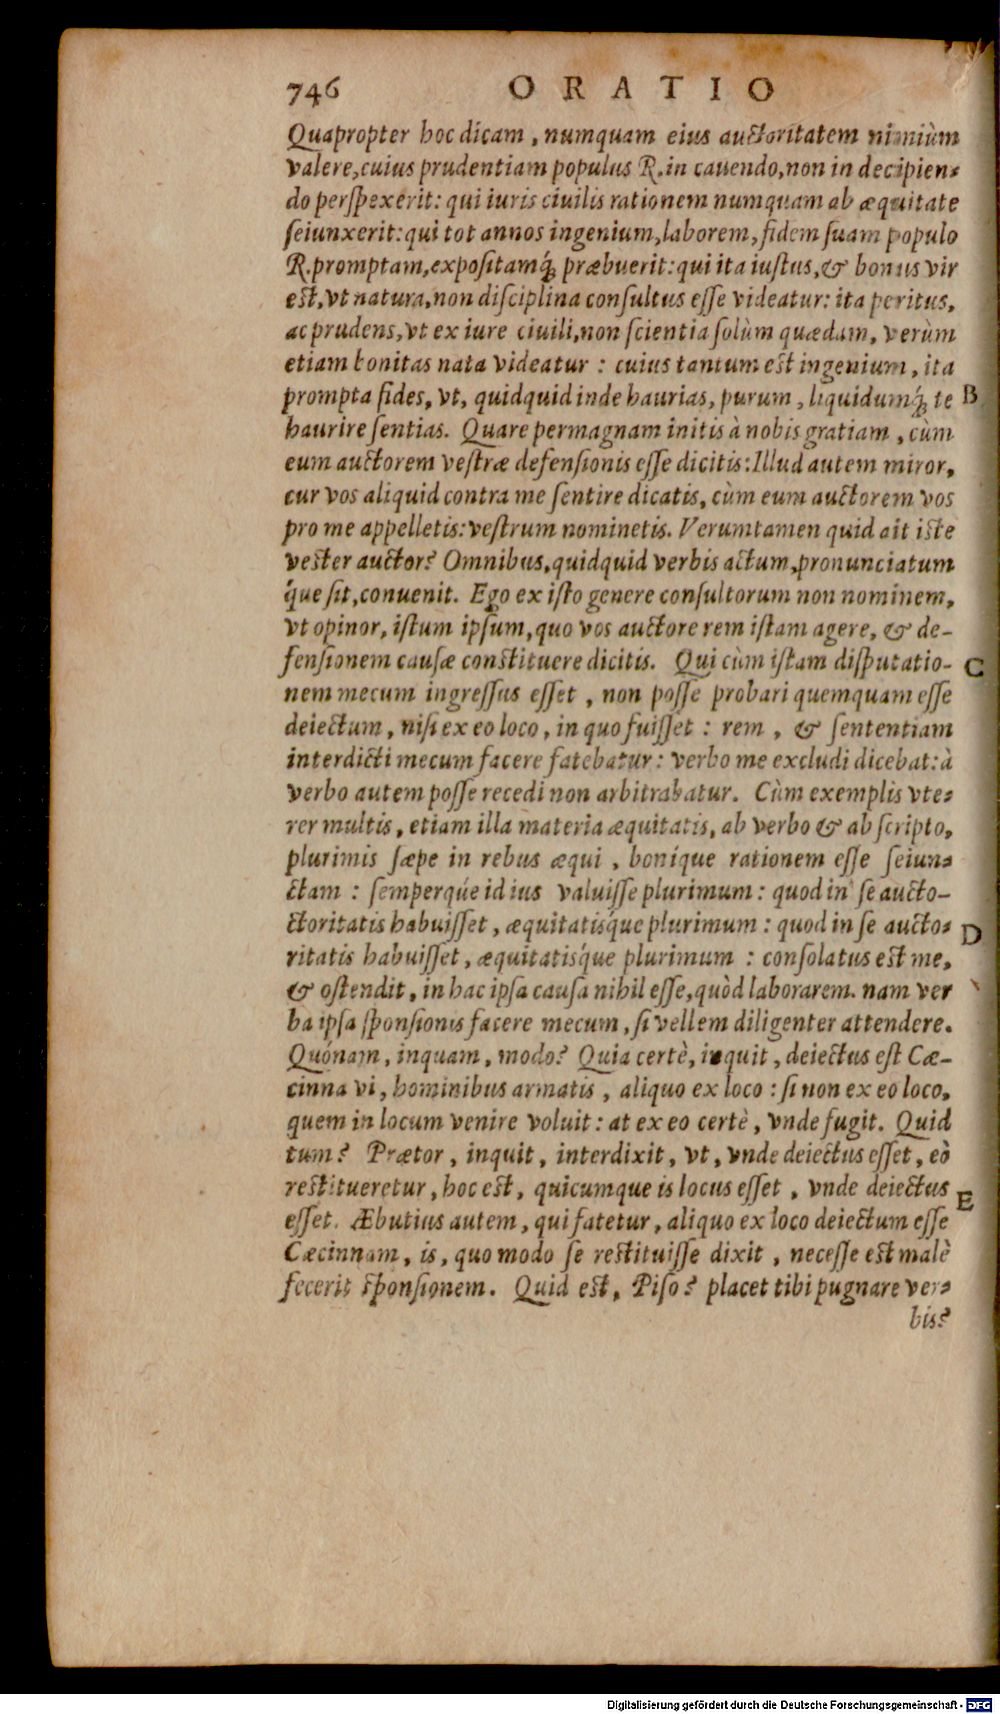 746 ORATIO
Quapropter hoc dicam, numquam eius auctoritatem nimiùm
valere, cuius prudentiam populus R. in cauendo, non in decipien-
do perſpexerit: qui iuris ciuilis rationem numquam ab æquitate
ſeiunxerit: qui tot annos ingenium, laborem, fidem ſuam populo
R. promptam, expoſitamq́; præbuerit: qui ita iuſtus, & bonus vir
eſt, vt natura, non diſciplina conſultus eſſe videatur: ita peritus,
ac prudens, vt ex iure ciuili, non ſcientia ſolùm quædam, verùm
etiam bonitas nata videatur: cuius tantum eſt ingenium, ita
prompta fides, vt, quidquid inde haurias, purum, liquidumq́; te B
haurire ſentias. Quare permagnam initis à nobis gratiam, cùm
eum auctorem veſtræ defenſionis eſſe dicitis: Illud autem miror,
cur vos aliquid contra me ſentire dicatis, cùm eum auctorem vos
pro me appelletis: veſtrum nominetis. Verumtamen quid ait iſte
veſter auctor? Omnibus, quidquid verbis actum, pronunciatum
q́ue ſit, conuenit. Ego ex iſto genere conſultorum non nominem,
vt opinor, iſtum ipſum, quo vos auctore rem iſtam agere, & de-
fenſionem cauſæ conſtituere dicitis. Qui cùm iſtam diſputatio- C
nem mecum ingreſſus eſſet, non poſſe probari quemquam eſſe
deiectum, niſi ex eo loco, in quo fuiſſet: rem, & ſententiam
interdicti mecum facere fatebatur: verbo me excludi dicebat: à
verbo autem poſſe recedi non arbitrabatur. Cùm exemplis vte-
rer multis, etiam illa materia æquitatis, ab verbo & ab ſcripto,
plurimis ſæpe in rebus æqui, boníque rationem eſſe ſeiun-
ctam: ſemperqúe id ius valuiſſe plurimum: quod in ſe aucto-
ctoritatis habuiſſet, æquitatisq́ue plurimum: quod in ſe aucto- D
ritatis habuiſſet, æquitatisq́ue plurimum: conſolatus eſt me,
& oſtendit, in hac ipſa cauſa nihil eſſe, quòd laborarem. nam ver
ba ipſa ſponſionis facere mecum, ſi vellem diligenter attendere.
Quónam, inquam, modo? Quia certè, inquit, deiectus eſt Cæ-
cinna vi, hominibus armatis, aliquo ex loco: ſi non ex eo loco,
quem in locum venire voluit: at ex eo certè, vnde fugit. Quid
tum? Prætor, inquit, interdixit, vt, vnde deiectus eſſet, eò
reſtitueretur, hoc eſt, quicumque is locus eſſet, vnde deiectus E
eſſet. Æbutius autem, qui fatetur, aliquo ex loco deiectum eſſe
Cæcinnam, is, quo modo ſe reſtituiſſe dixit, neceſſe eſt malè
fecerit ſponſionem. Quid eſt, Piſo? placet tibi pugnare ver-
bis?
Digitalisierung gefördert durch die Deutsche Forschungsgemeinschaft - DFG